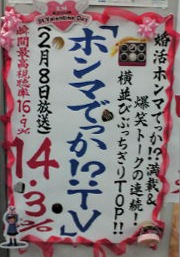 St. Valentine Day
婚活ホンマでっか!?満載&
爆笑トークの連続!
横並とぶっちぎりTOP!!
「ホンマでっか!?TV」
(2月8日放送)
14.3%
瞬間最高視聴率16.9%